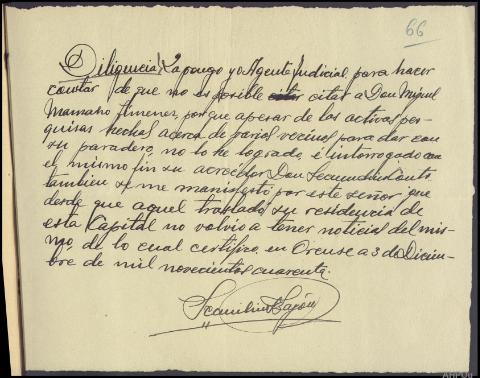 66
Diligencia/ La pongo yo Agente Judicial, para hacer
constar de que no es posible citar a Don Miguel
Mamano Jimenez, porque apesar de las activas pes-
quisas hechas acerca de varios vecinos para dar con
su paradero, no lo he logrado, é interrogado con
el mismo fin su acreedor Don Secundino Couto
tambien se me manifestó por este señor que
desde que aquel trasladó su residencia de
esta Capital no volvio a tener noticias del mis-
mo, de lo cual certifico, en Orense a 3 de Diciem-
bre de mil novecientos cuarenta.